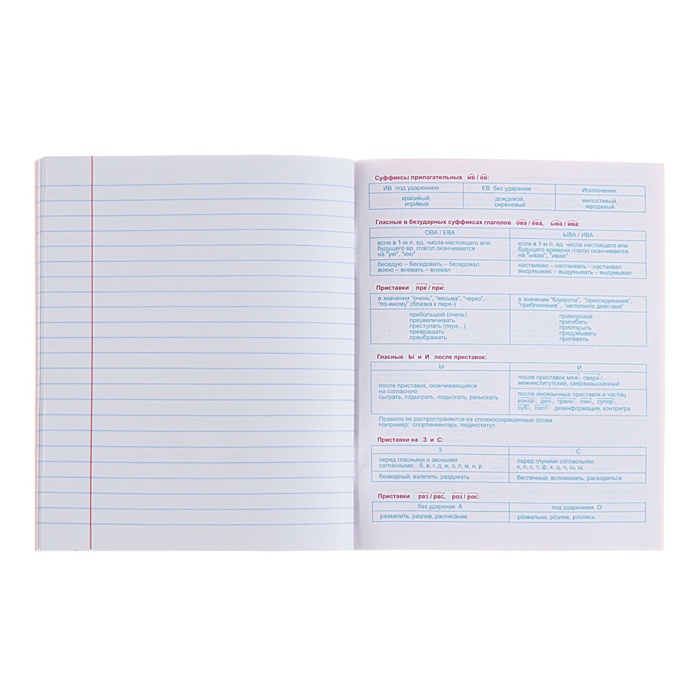 Суффиксы прилагательных ив / ев:
ИВ под ударением ЕВ без ударения Исключения:
красивый, дождевой, милостивый,
игривый сиреневый юродивый
Гласные в безударных суффиксах глаголов ова / ева, ыва / ива:
ОВА / ЕВА ЫВА / ИВА
если в 1-м л. ед. числа настоящего или если в 1-м л. ед. числа настоящего или
будущего вр. глагол оканчивается будущего времени глагол оканчивается
на "ую", "юю" на "ываю", "иваю"
беседую – беседовать – беседовал настаиваю – настаивать – настаивал
воюю – воевать – воевал выдумываю – выдумывать – выдумывал
Приставки пре / при:
в значении "очень", "весьма", "через", в значении "близости", "присоединения",
"по-иному" (близка к пере-) "приближения", "неполного действия"
пребольшой (очень) приморский
преувеличивать пригибать
преступать (пере...) приоткрыть
превращать придумывать
преображать припевать
Гласные Ы и И после приставок:
Ы И
после приставок, оканчивающихся после приставок меж-, сверх-:
на согласную: межинститутский, сверхизысканный
сыграть, подыграть, подыскать, разыскать после иноязычных приставок и частиц
контр-, дез-, транс-, пан-, супер-,
суб-, пост-: дезинформация, контригра
Правило не распространяется на сложносокращенные слова.
Например: спортинвентарь, пединститут.
Приставки на З и С:
З С
перед гласными и звонкими перед глухими согласными:
согласными: б, в, г, д, ж, з, л, м, н, р к, п, с, т, ф, х, ц, ч, ш, щ
безводный, взлететь, раздумать беспечный, вспоминать, расходиться
Приставки раз / рас, роз / рос:
без ударения А под ударением О
развалить, разлив, расписание розвальни, розлив, роспись